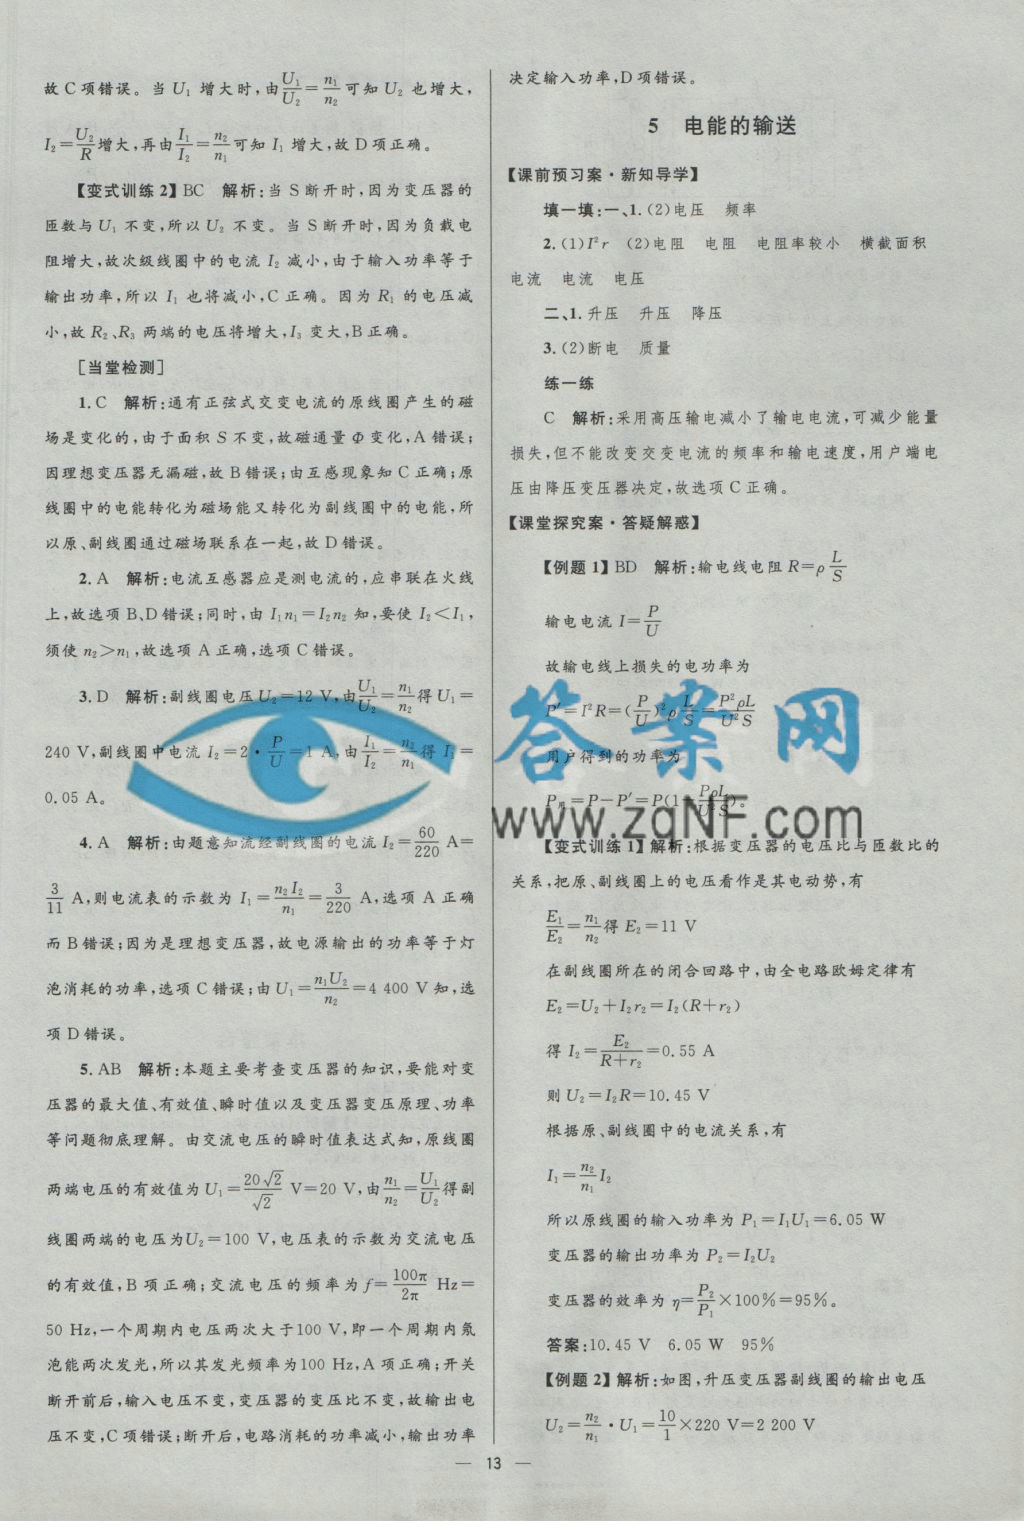 故C项错误。当 U₁ 增大时,由U₁/U₂=n₁/n₂可知 U₂ 也增大,
I₂=U₂/R增大,再由I₁/I₂=n₂/n₁可知 I₁ 增大,故 D项正确。
【变式训练2】BC 解析:当 S断开时,因为变压器的
匝数与 U₁ 不变,所以 U₂ 不变。当 S断开时,因为负载电
阻增大,故次级线圈中的电流 I₂ 减小,由于输入功率等于
输出功率,所以 I₁ 也将减小,C正确。因为 R₁ 的电压减
小,故 R₂、R₃ 两端的电压将增大,I₃ 变大,B正确。
[当堂检测]
1.C 解析:通有正弦式交变电流的原线圈产生的磁
场是变化的,由于面积 S不变,故磁通量Φ变化,A错误;
因理想变压器无漏磁,故B错误;由互感现象知C正确;原
线圈中的电能转化为磁场能又转化为副线圈中的电能,所
以原、副线圈通过磁场联系在一起,故D错误。
2.A 解析:电流互感器应是测电流的,应串联在火线
上,故选项 B、D错误;同时,由 I₁n₁=I₂n₂ 知,要使 I₂<I₁,
须使 n₂>n₁,故选项 A正确,选项C错误。
3.D 解析:副线圈电压U₂=12 V,由U₁/U₂=n₁/n₂得 U₁=
240 V,副线圈中电流 I₂=2·P/U=1 A,由I₁/I₂=n₂/n₁得 I₁=
0.05 A。
4.A 解析:由题意知流经副线圈的电流 I₂=60/220 A=
3/11 A,则电流表的示数为 I₁=n₂I₂/n₁=3/220 A,选项 A正确
而B错误;因为是理想变压器,故电源输出的功率等于灯
泡消耗的功率,选项C错误;由U₁=n₁U₂/n₂=4 400 V知,选
项D错误。
5.AB 解析:本题主要考查变压器的知识,要能对变
压器的最大值、有效值、瞬时值以及变压器变压原理、功率
等问题彻底理解。由交流电压的瞬时值表达式知,原线圈
两端电压的有效值为U₁=20√2/√2 V=20 V,由n₁/n₂=U₁/U₂得副
线圈两端的电压为U₂=100 V,电压表的示数为交流电压
的有效值,B项正确;交流电压的频率为 f=100π/2π Hz=
50 Hz,一个周期内电压两次大于100 V,即一个周期内氖
泡能两次发光,所以其发光频率为100 Hz,A项正确;开关
断开前后,输入电压不变,变压器的变压比不变,故输出电
压不变,C项错误;断开后,电路消耗的功率减小,输出功率
决定输入功率,D项错误。
5 电能的输送
【课前预习案·新知导学】
填一填:一、1.(2)电压 频率
2.(1)I²r (2)电阻 电阻 电阻率较小 横截面积
电流 电流 电压
二、1.升压 升压 降压
3.(2)断电 质量
练一练
C 解析:采用高压输电减小了输电电流,可减少能量
损失,但不能改变交变电流的频率和输电速度,用户端电
压由降压变压器决定,故选项C正确。
【课堂探究案·答疑解惑】
【例题1】BD 解析:输电线电阻R=ρL/S
输电电流 I=P/U
故输电线上损失的电功率为
P′=I²R=(P/U)²ρL/S=P²ρL/U²S
用户得到的功率为
P用=P-P′=P(1-PρL/U²S)。
【变式训练1】解析:根据变压器的电压比与匝数比的
关系,把原、副线圈上的电压看作是其电动势,有
E₁/E₂=n₁/n₂得 E₂=11 V
在副线圈所在的闭合回路中,由全电路欧姆定律有
E₂=U₂+I₂r₂=I₂(R+r₂)
得 I₂=E₂/(R+r₂)=0.55 A
则 U₂=I₂R=10.45 V
根据原、副线圈中的电流关系,有
I₁=n₂/n₁I₂
所以原线圈的输入功率为 P₁=I₁U₁=6.05 W
变压器的输出功率为 P₂=I₂U₂
变压器的效率为 η=P₂/P₁×100%=95%。
答案:10.45 V 6.05 W 95%
【例题2】解析:如图,升压变压器副线圈的输出电压
U₂=n₂/n₁·U₁=10/1×220 V=2 200 V
— 13 —
答案网
www.zqNF.com